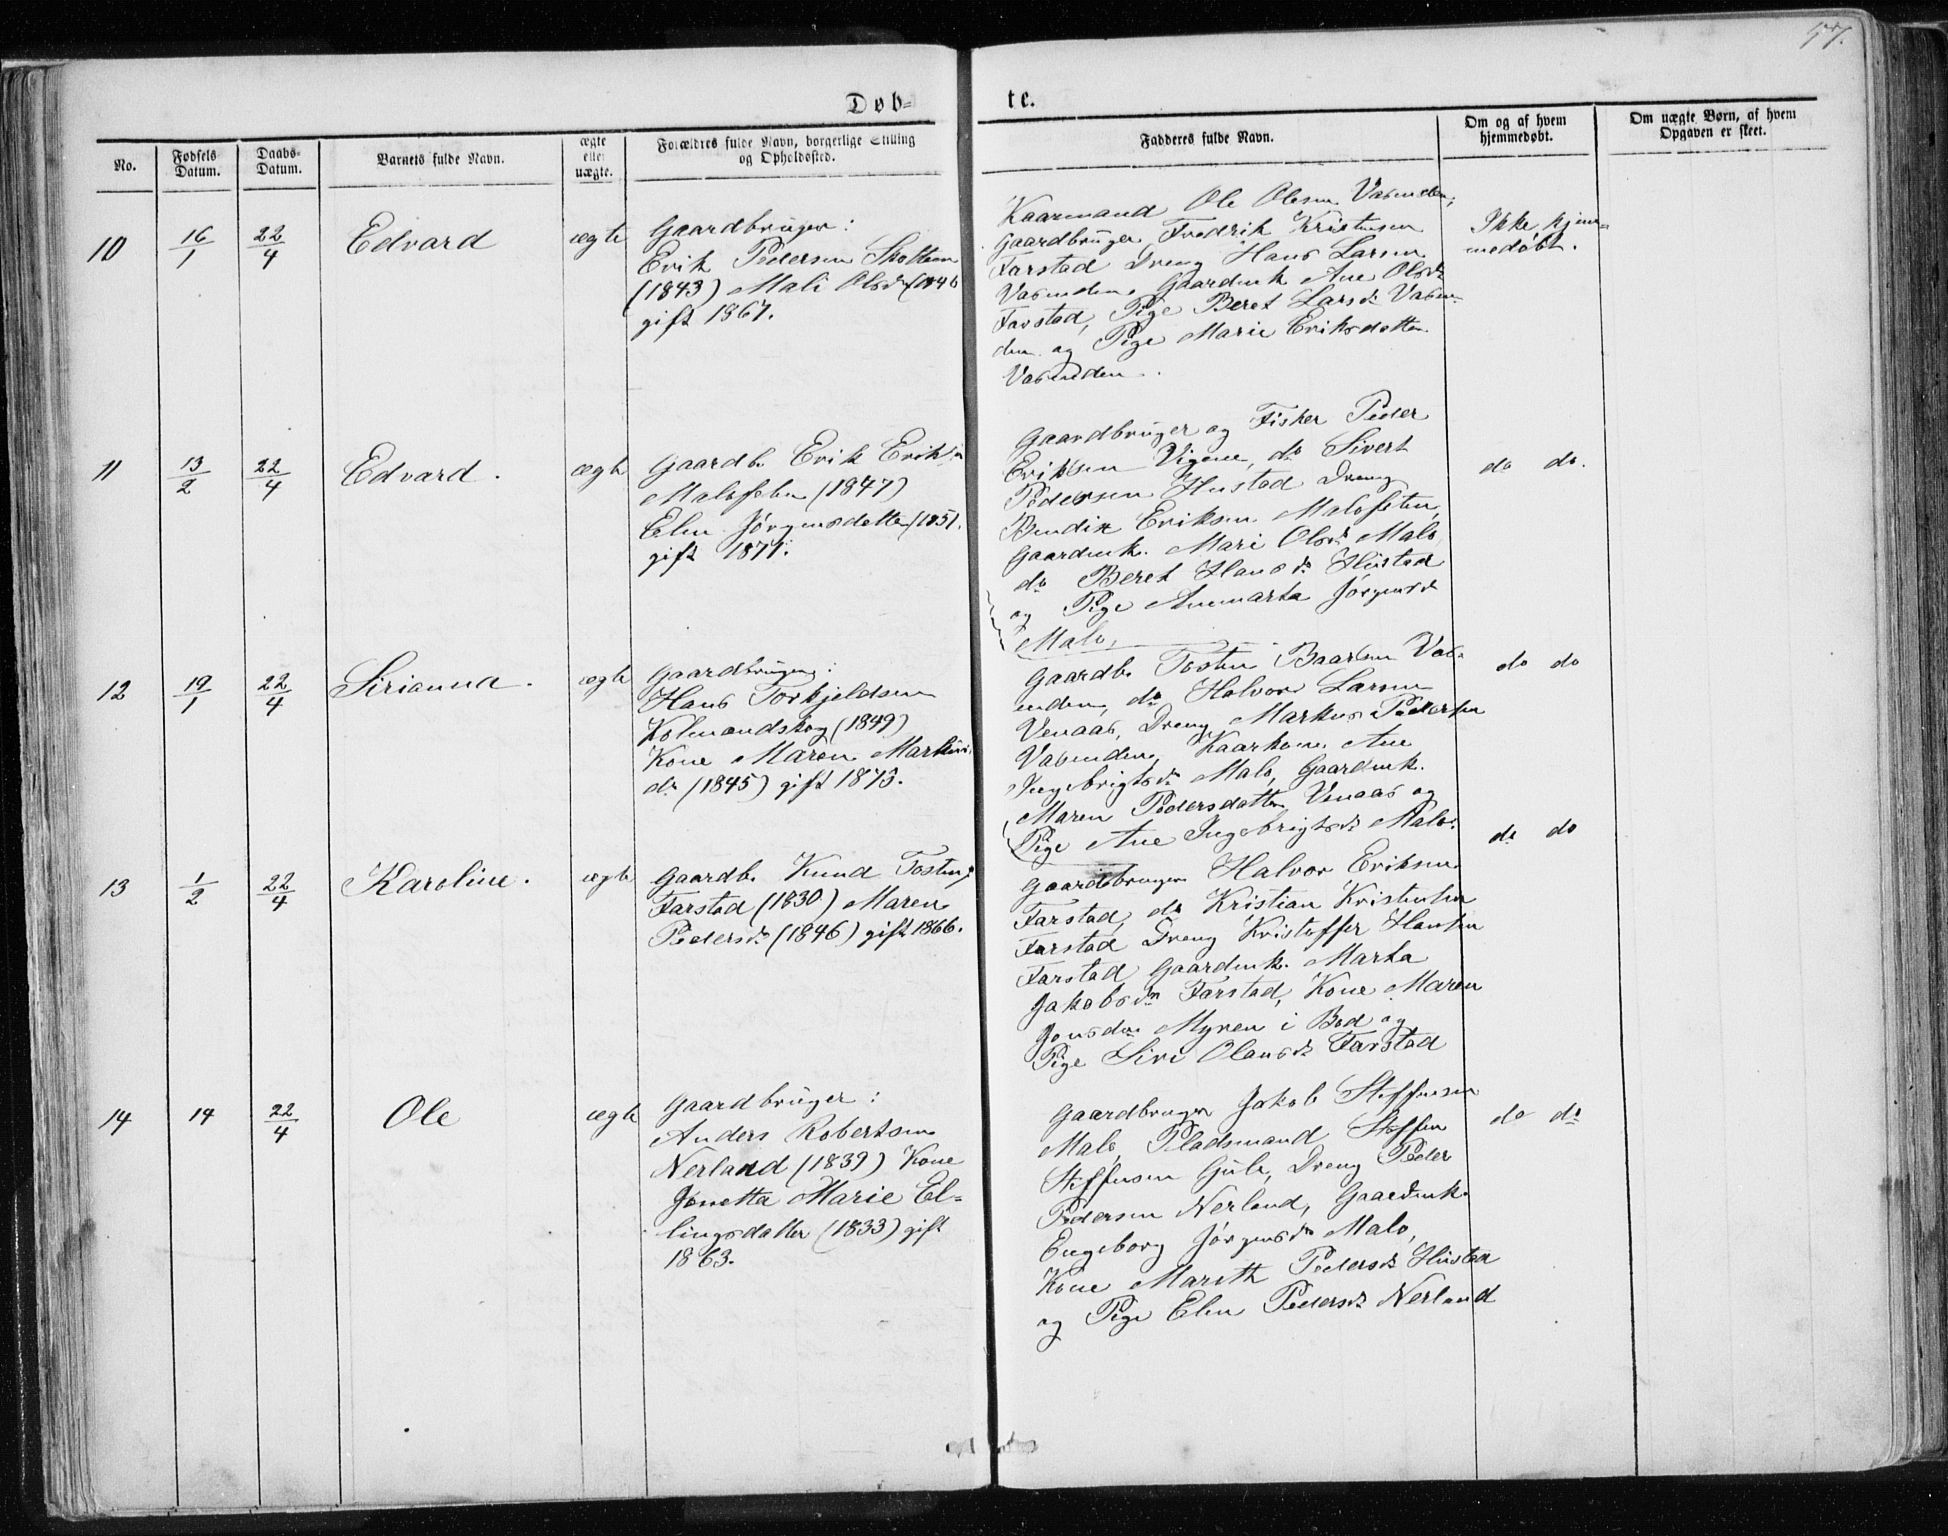 57.
Døb=
te.
No.
Fødsels Datum.
Daabs= Datum.
Barnets fulde Navn.
ægte eller uægte.
Forældres fulde Navn, borgerlige Stilling og Opholdssted.
Fadderes fulde Navn.
Om og af hvem hjemmedøbt.
Om uægte Børn, af hvem Opgaven er skeet.
10
16/1
22/4
Edvard
ægte
Gaardbruger:
Erik Pedersen Skotten
(1843) Mali Olsdr (1846
gift 1867.
Kaarmand Ole Olsen Vasenden,
Gaardbruger Fredrik Kristensen
Farstad Dreng Hans Larsen
Vasenden, Gaardmk Ane Olsdr
Farstad, Pige Beret Larsdr Vasen-
den og Pige Marie Eriksdatter
Vasenden.
Ikke hjem=
medøbt.
11
13/2
22/4
Edvard.
ægte
Gaardb. Erik Eriksen
Malosæten (1847)
Elen Jørgensdatter (1851.
gift 1871.
Gaardbruger og Fisker Peder
Eriksen Vigene, do Sivert
Pedersen Hustad Dreng
Bendix Eriksen Malosæten,
Gaardmk. Mari Olsdr Malo
do Beret Hansdr Hustad
og Pige Anemarta Jørgensdr
Malo.
do do.
12
19/1
22/4
Sirianna.
ægte
Gaardbruger:
Hans Torkjeldsen
Kolmandskog (1849)
Kone Maren Markus
dr (1845) gift 1873.
Gaardb. Tosten Baardsen Vas-
enden, do Halvor Larsen
Venaas, Dreng Markus Pedersen
Vasenden, Kaarkone Ane
Ingebrigtsdr Malo, Gaardmk.
Maren Pedersdatter Venaas og
Pige Ane Ingebrigtsdr Malo.
do do
13
1/2
22/4
Karoline.
ægte
Gaardb. Knud Tostens
Farstad (1830) Maren
Pedersdr (1846) gift 1866.
Gaardbruger Halvor Eriksen
Farstad, do Kristian Kristensen
Farstad Dreng Kristoffer Hansen
Farstad Gaardmk. Marta
Jakobsdr Farstad, Kone Maren
Jonsdr Myren i Bod og
Pige Siri Olausdr Farstad
do do
14
14
22/4
Ole
ægte
Gaardbruger:
Anders Robertsen
Nerland (1839) Kone
Jonetta Marie El=
lingsdatter (1833) gift
1863.
Gaardbruger Jakob Steffensen
Malo, Pladsmand Steffen
Steffensen Gule, Dreng Peder
Pedersen Nerland, Gaardmk.
Engeborg Jørgensdr Malo,
Kone Marith Pedersdr Hustad
og Pige Elen Pedersdr Nerland
do do